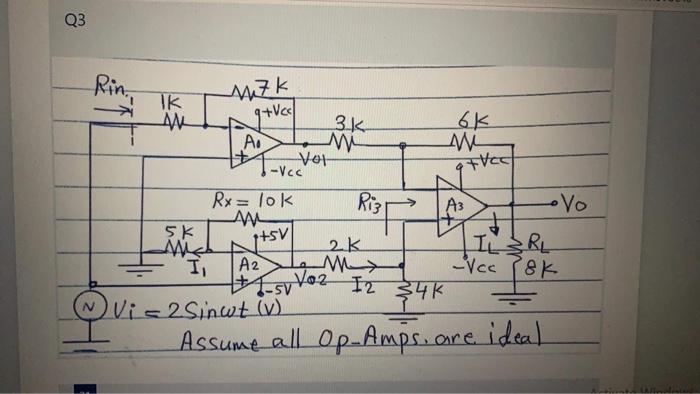 Q3
Rin
1K
7K
+Vcc
A1
-Vcc
Vo1
3K
6K
+Vcc
Ri3
A3
-Vcc
Vo
IL
RL
8K
Rx = 10K
5K
I1
+5V
A2
-5V
Vo2
2K
I2
4K
N Vi = 2 Sinωt (V)
Assume all Op-Amps. are ideal